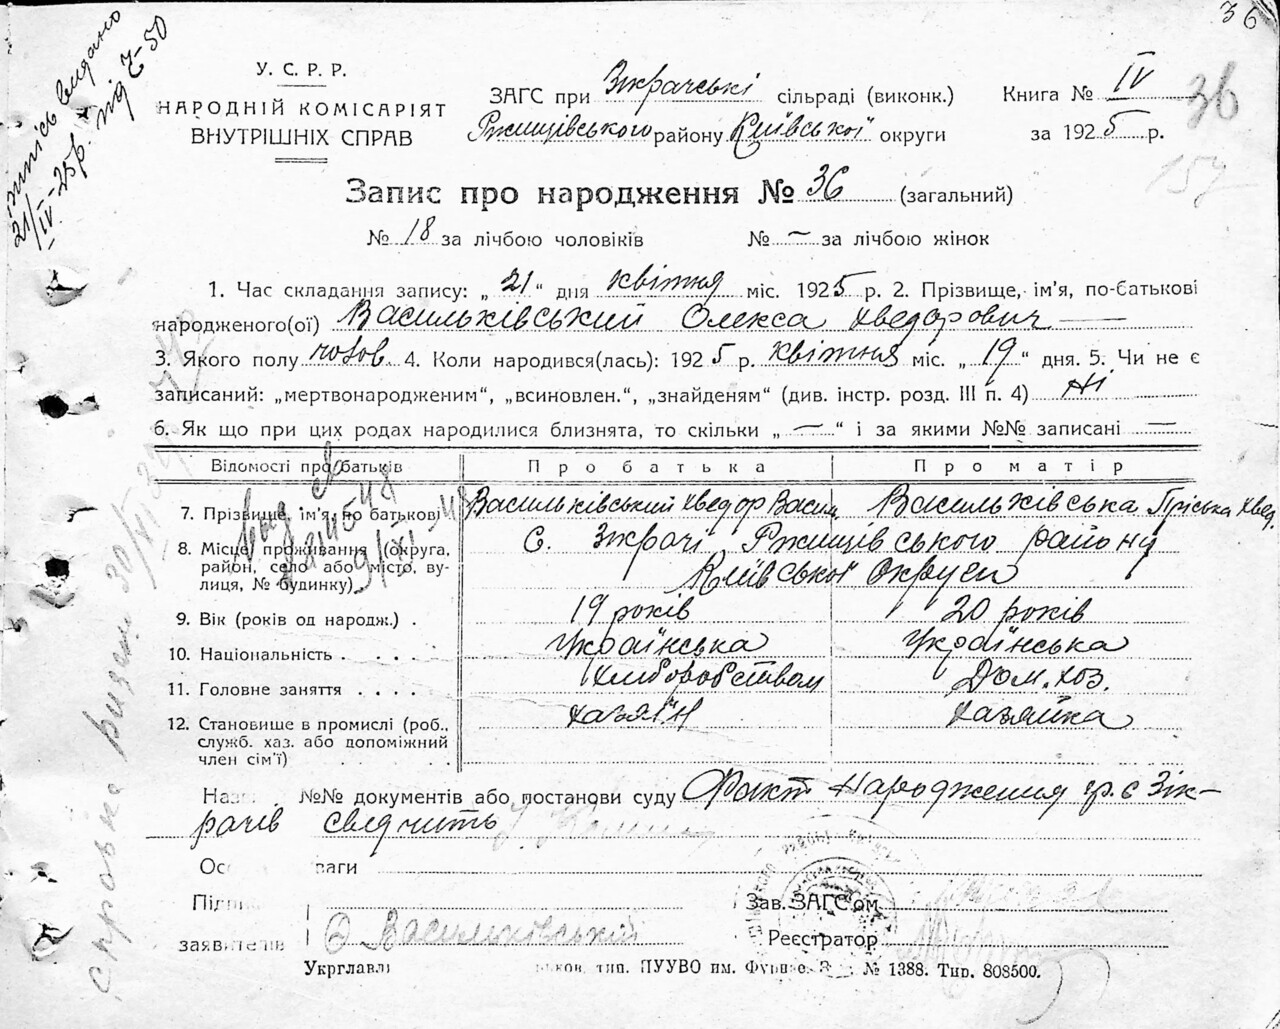 36
У. С. Р. Р.
НАРОДНІЙ КОМІСАРІЯТ
ВНУТРІШНІХ СПРАВ
ЗАГС при Зікрачські сільраді (виконк.)
Ржищівського району Київської округи
Книга № IV
за 1925 р.
36
157
випись видано
21/IV-25р. під Ч-50
Запис про народження № 36 (загальний)
№ 18 за лічбою чоловіків № — за лічбою жінок
1. Час складання запису: „21“ дня квітня міс. 1925 р. 2. Прізвище, ім'я, по-батькові
народженого(ої) Васильківський Олекса Хведорович —
3. Якого полу чолов. 4. Коли народився(лась): 1925 р. квітня міс. „19“ дня. 5. Чи не є
записаний: „мертвонародженим“, „всиновлен.“, „знайденям“ (див. інстр. розд. III п. 4) Ні
6. Як що при цих родах народилися близнята, то скільки „—“ і за якими №№ записані —
Відомості про батьків Про батька Про матір
7. Прізвище, ім'я, по батькові Васильківський Хведор Васил. Васильківська Пріська Хвед.
8. Місце проживання (округа, район, село або місто, вулиця, № будинку) С. Зікрачі Ржищівського району
Київської округи
9. Вік (років од народж.) . 19 років 20 років
10. Національність . . . . Українська Українська
11. Головне заняття . . . . Хліборобством Дом. хоз.
12. Становище в промислі (роб., служб. хаз. або допоміжний член сім'ї) хазяїн хазяйка
№№ документів або постанови суду Факт народження гр. с Зік-
рачів свідчить
ваги
Зав. ЗАГС'ом
заявителів Ф Васильковський Реєстратор
Укрглавлі тип. ПУУВО им. Фрунзе. З № 1388. Тир. 808500.
справка видан 30/VI